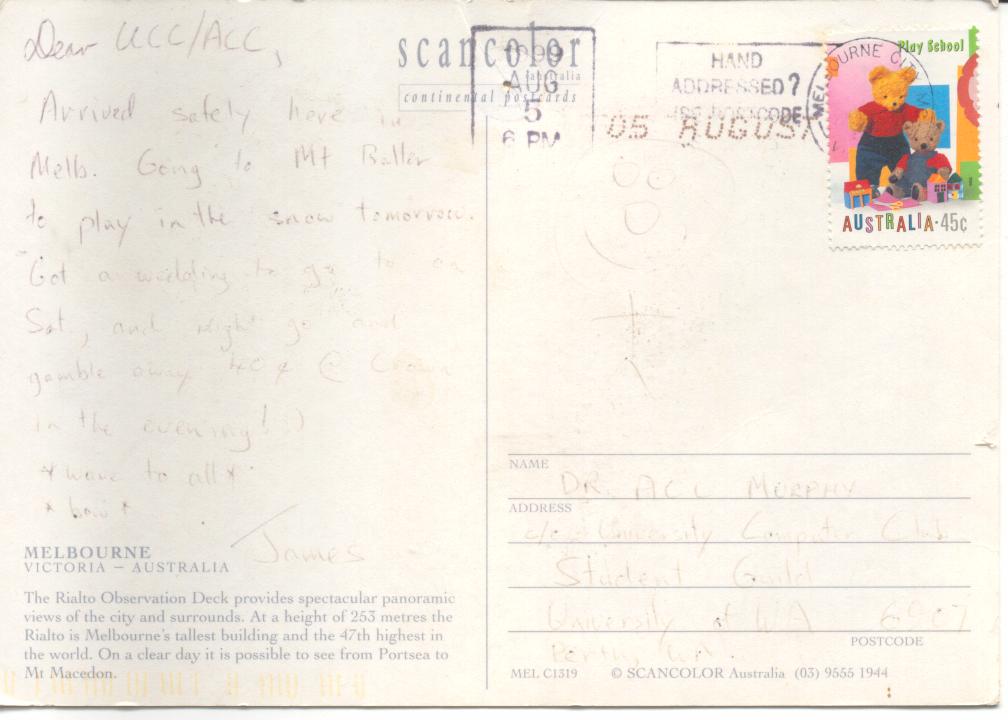 Dear UCC/ACC,
Arrived safely here in
Melb. Going to Mt Buller
to play in the snow tomorrow.
Got a wedding to go to on
Sat, and might go and
gamble away 40¢ @ Crown
in the evening! :)
*wave to all*
*bow*
James
MELBOURNE
VICTORIA – AUSTRALIA
The Rialto Observation Deck provides spectacular panoramic
views of the city and surrounds. At a height of 253 metres the
Rialto is Melbourne's tallest building and the 47th highest in
the world. On a clear day it is possible to see from Portsea to
Mt Macedon.
scancolor
australia
continental postcards
AUG
5
6 PM
HAND
ADDRESSED?
POSTCODE
05 AUGUST
MELBOURNE CITY
Play School
AUSTRALIA·45c
NAME
DR. ACC MURPHY
ADDRESS
University Computer Club
Student Guild
University of WA 6907
Perth, WA.
POSTCODE
MEL C1319 © SCANCOLOR Australia (03) 9555 1944